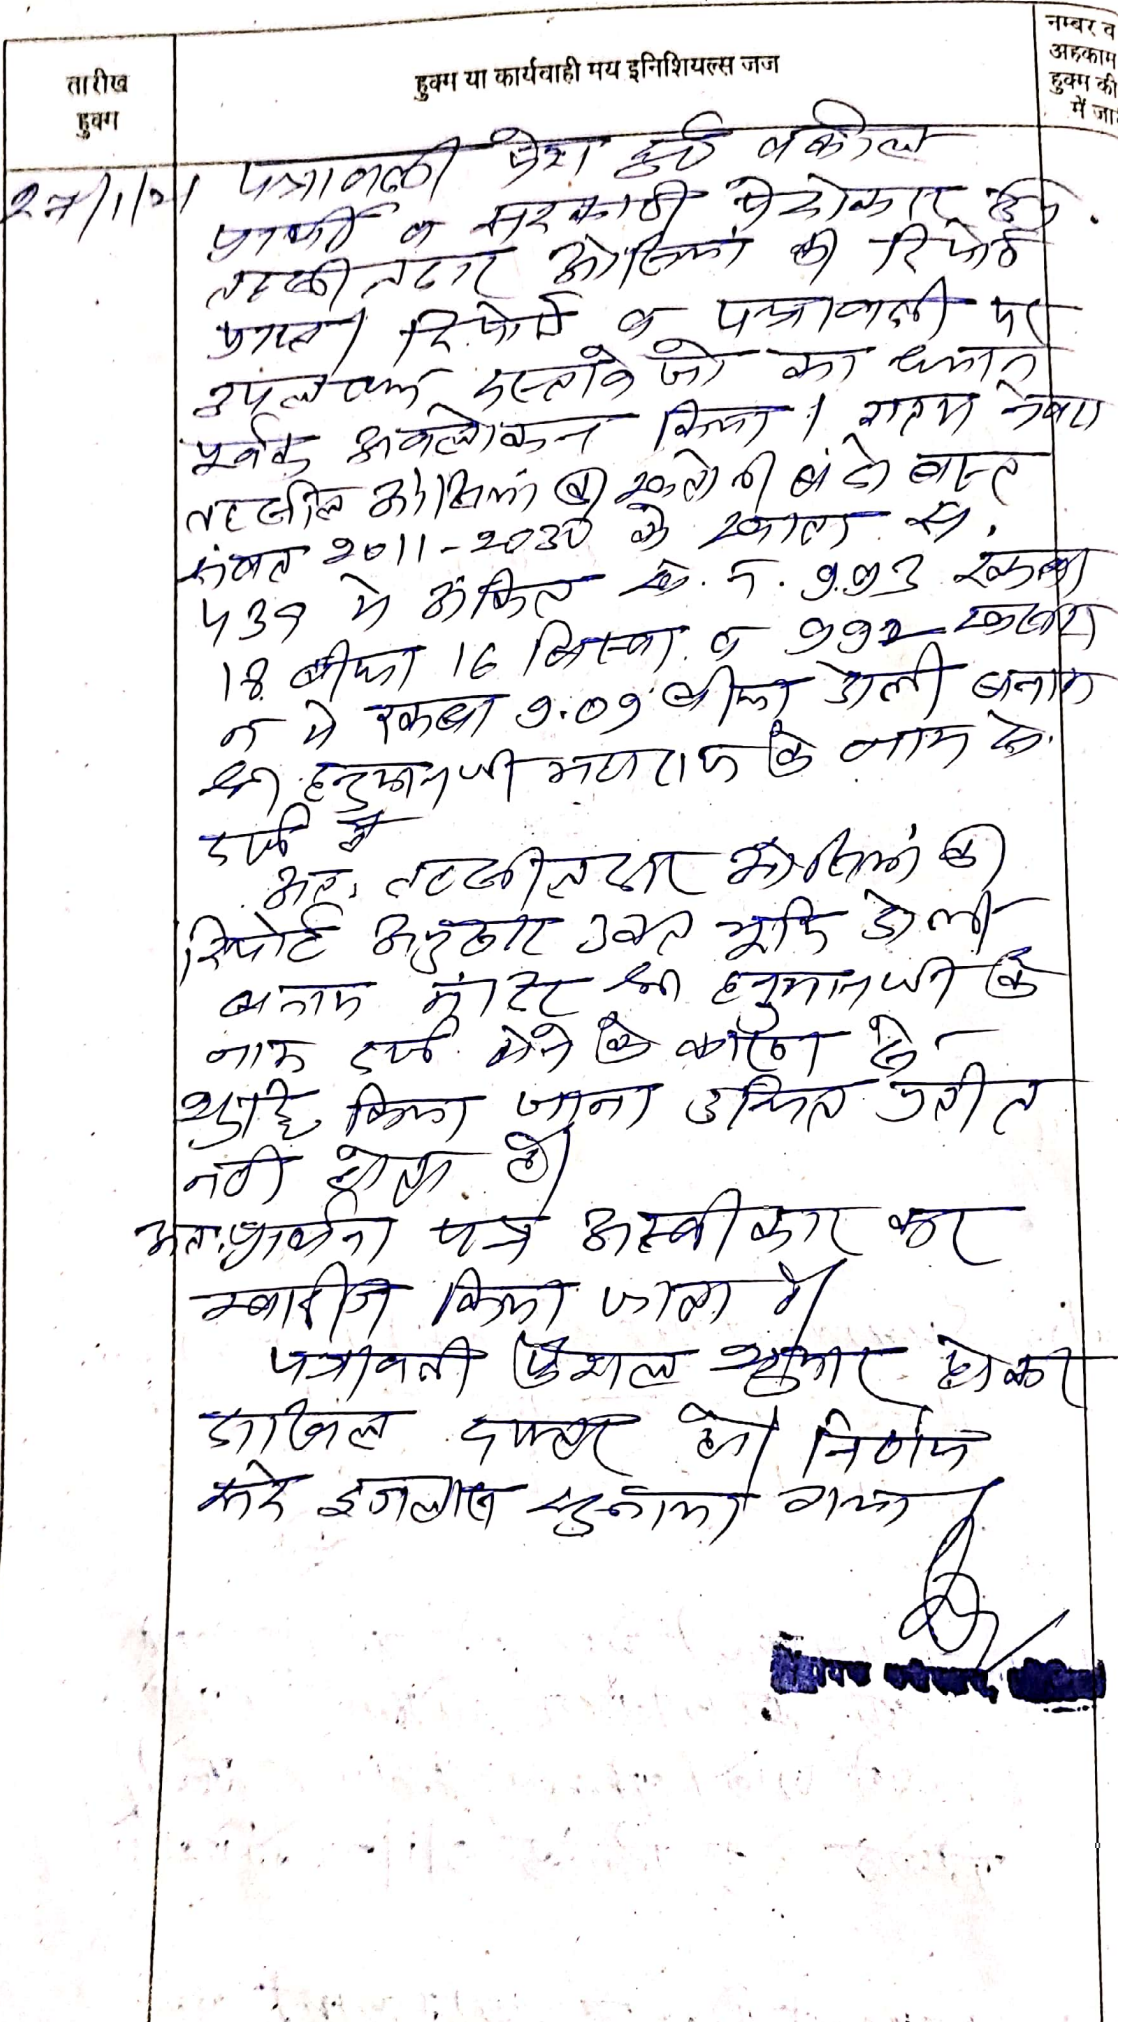 तारीख
हुक्म
हुक्म या कार्यवाही मय इनिशियल्स जज
नम्बर व
अहकाम
हुक्म की
में जा
पत्रावली पेश हुई वकील
प्रार्थी व सरकारी पेरोकार
तहसीलदार ओसियां की रिपोर्ट
प्राप्त। रिपोर्ट व पत्रावली पर
उपलब्ध दस्तावेजो का ध्यान
पूर्वक अवलोकन किया। ग्राम नेवरा
तहसील ओसियां की खतोनी बंदोबस्त
संवत 2011-2030 के खाता सं.
439 मे अंकित ख. न. 993 रकबा
18 बीघा 16 बिस्वा व 992 खसरा
न मे रकबा 9.09 बीघा डोली बनाम
श्री हनुमानजी महाराज के नाम से
दर्ज है
अतः तहसीलदार ओसियां की
रिपोर्ट अनुसार उक्त भूमि डोली
बनाम मंदिर श्री हनुमानजी के
नाम दर्ज होने के कारण से
शुद्धि किया जाना उचित प्रतीत
नही होता है।
अतः प्रार्थना पत्र अस्वीकार कर
खारीज किया जाता है।
पत्रावली फैसल शुमार होकर
दाखिल दफ्तर हो। निर्णय
सरे इजलास सुनाया गया।